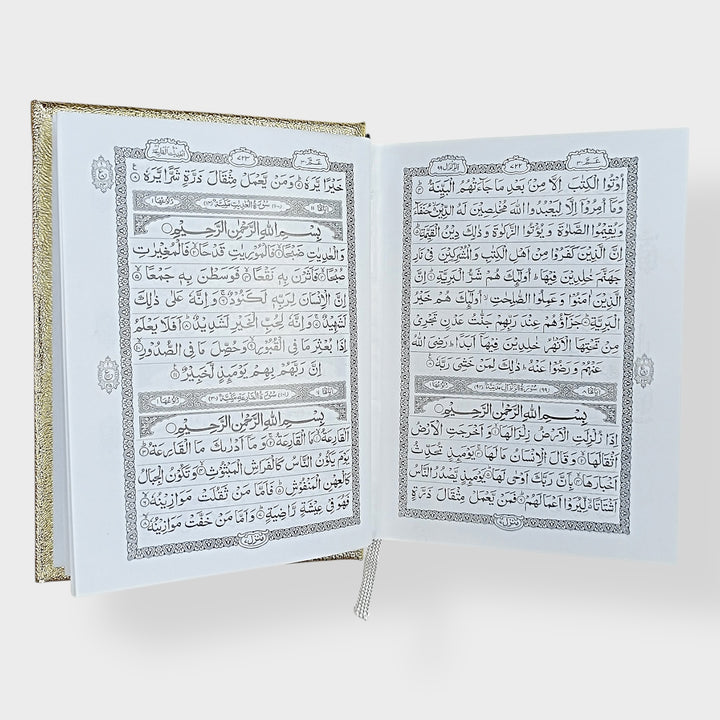 عَمَّ ٣٠ ٧٢٢ الزلزال ٩٩
اُوْتُوا الْكِتٰبَ اِلَّا مِنْۢ بَعْدِ مَا جَآءَتْهُمُ الْبَيِّنَةُ ۝
وَمَآ اُمِرُوْٓا اِلَّا لِيَعْبُدُوا اللّٰهَ مُخْلِصِيْنَ لَهُ الدِّيْنَ حُنَفَآءَ
وَيُقِيْمُوا الصَّلٰوةَ وَيُؤْتُوا الزَّكٰوةَ وَذٰلِكَ دِيْنُ الْقَيِّمَةِ ۝
اِنَّ الَّذِيْنَ كَفَرُوْا مِنْ اَهْلِ الْكِتٰبِ وَالْمُشْرِكِيْنَ فِيْ نَارِ
جَهَنَّمَ خٰلِدِيْنَ فِيْهَا ۭ اُولٰٓئِكَ هُمْ شَرُّ الْبَرِيَّةِ ۝ اِنَّ
الَّذِيْنَ اٰمَنُوْا وَعَمِلُوا الصّٰلِحٰتِ اُولٰٓئِكَ هُمْ خَيْرُ
الْبَرِيَّةِ ۝ جَزَآؤُهُمْ عِنْدَ رَبِّهِمْ جَنّٰتُ عَدْنٍ تَجْرِيْ
مِنْ تَحْتِهَا الْاَنْهٰرُ خٰلِدِيْنَ فِيْهَآ اَبَدًا ۭ رَضِيَ اللّٰهُ
عَنْهُمْ وَرَضُوْا عَنْهُ ۭ ذٰلِكَ لِمَنْ خَشِيَ رَبَّهٗ ۝
اٰيَاتُهَا ٨ (٩٩) سُوْرَةُ الزِّلْزَالِ مَدَنِيَّةٌ (٩٣) رُكُوْعُهَا ١
بِسْمِ اللّٰهِ الرَّحْمٰنِ الرَّحِيْمِ ۝
اِذَا زُلْزِلَتِ الْاَرْضُ زِلْزَالَهَا ۝ وَاَخْرَجَتِ الْاَرْضُ
اَثْقَالَهَا ۝ وَقَالَ الْاِنْسَانُ مَا لَهَا ۝ يَوْمَئِذٍ تُحَدِّثُ
اَخْبَارَهَا ۝ بِاَنَّ رَبَّكَ اَوْحٰى لَهَا ۝ يَوْمَئِذٍ يَّصْدُرُ النَّاسُ
اَشْتَاتًا ۙ لِّيُرَوْا اَعْمَالَهُمْ ۝ فَمَنْ يَّعْمَلْ مِثْقَالَ ذَرَّةٍ
عَمَّ ٣٠ ٧٢٣ العٰديٰت القارعة
خَيْرًا يَّرَهٗ ۝ وَمَنْ يَّعْمَلْ مِثْقَالَ ذَرَّةٍ شَرًّا يَّرَهٗ ۝
اٰيَاتُهَا ١١ (١٠٠) سُوْرَةُ الْعٰدِيٰتِ مَكِّيَّةٌ (١٤) رُكُوْعُهَا ١
بِسْمِ اللّٰهِ الرَّحْمٰنِ الرَّحِيْمِ ۝
وَالْعٰدِيٰتِ ضَبْحًا ۝ فَالْمُوْرِيٰتِ قَدْحًا ۝ فَالْمُغِيْرٰتِ
صُبْحًا ۝ فَاَثَرْنَ بِهٖ نَقْعًا ۝ فَوَسَطْنَ بِهٖ جَمْعًا ۝
اِنَّ الْاِنْسَانَ لِرَبِّهٖ لَكَنُوْدٌ ۝ وَاِنَّهٗ عَلٰى ذٰلِكَ
لَشَهِيْدٌ ۝ وَاِنَّهٗ لِحُبِّ الْخَيْرِ لَشَدِيْدٌ ۝ اَفَلَا يَعْلَمُ
اِذَا بُعْثِرَ مَا فِي الْقُبُوْرِ ۝ وَحُصِّلَ مَا فِي الصُّدُوْرِ ۝
اِنَّ رَبَّهُمْ بِهِمْ يَوْمَئِذٍ لَّخَبِيْرٌ ۝
(١٠١) سُوْرَةُ الْقَارِعَةِ مَكِّيَّةٌ (٣٠) رُكُوْعُهَا ١
بِسْمِ اللّٰهِ الرَّحْمٰنِ الرَّحِيْمِ ۝
اَلْقَارِعَةُ ۝ مَا الْقَارِعَةُ ۝ وَمَآ اَدْرٰىكَ مَا الْقَارِعَةُ ۝
يَوْمَ يَكُوْنُ النَّاسُ كَالْفَرَاشِ الْمَبْثُوْثِ ۝ وَتَكُوْنُ الْجِبَالُ
كَالْعِهْنِ الْمَنْفُوْشِ ۝ فَاَمَّا مَنْ ثَقُلَتْ مَوَازِيْنُهٗ ۝
فَهُوَ فِيْ عِيْشَةٍ رَّاضِيَةٍ ۝ وَاَمَّا مَنْ خَفَّتْ مَوَازِيْنُهٗ ۝